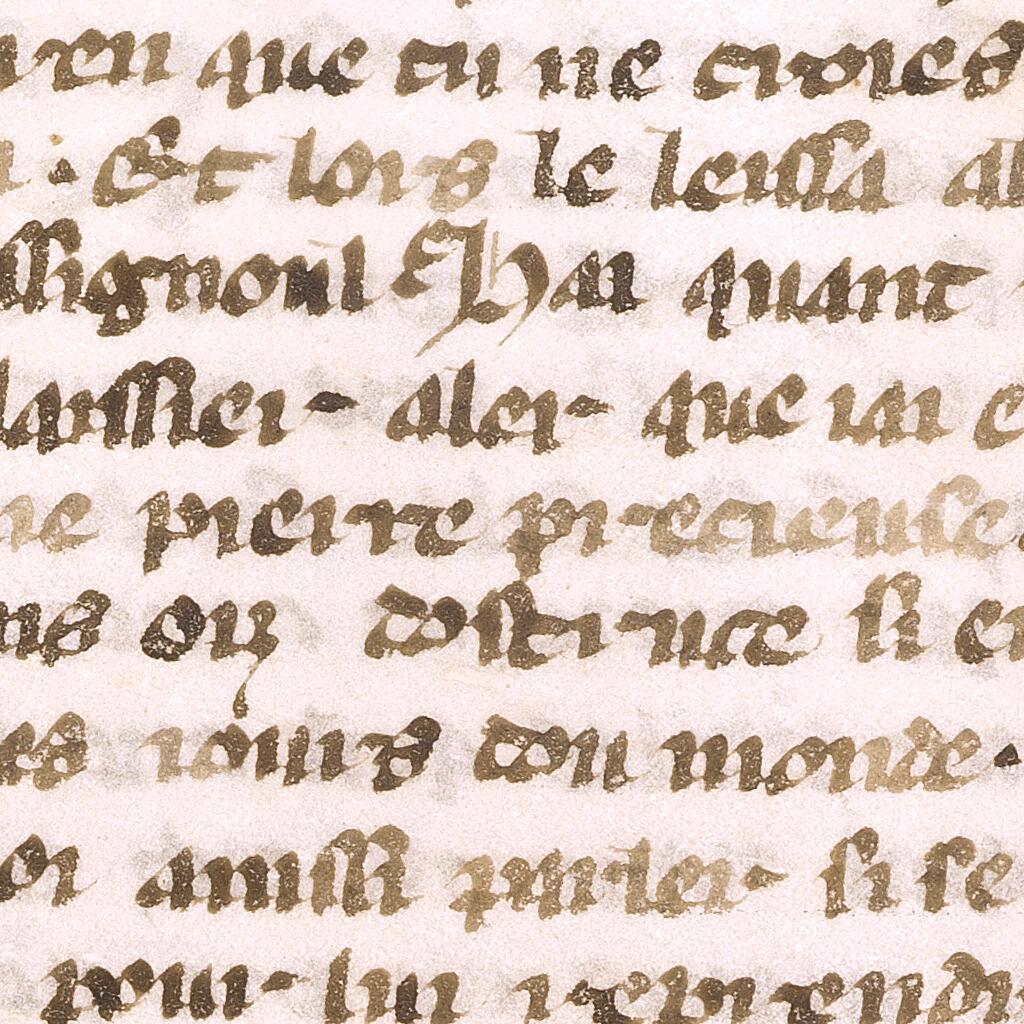 rien que tu ne croies
. Et lors le leissa al
ssignoul Hai quant
laissier aler que iai e
ne pierre precieuse.
ns oiz dostruce si en
es iours dou monde.
oi ainssi parler si se
pour lui reprendr